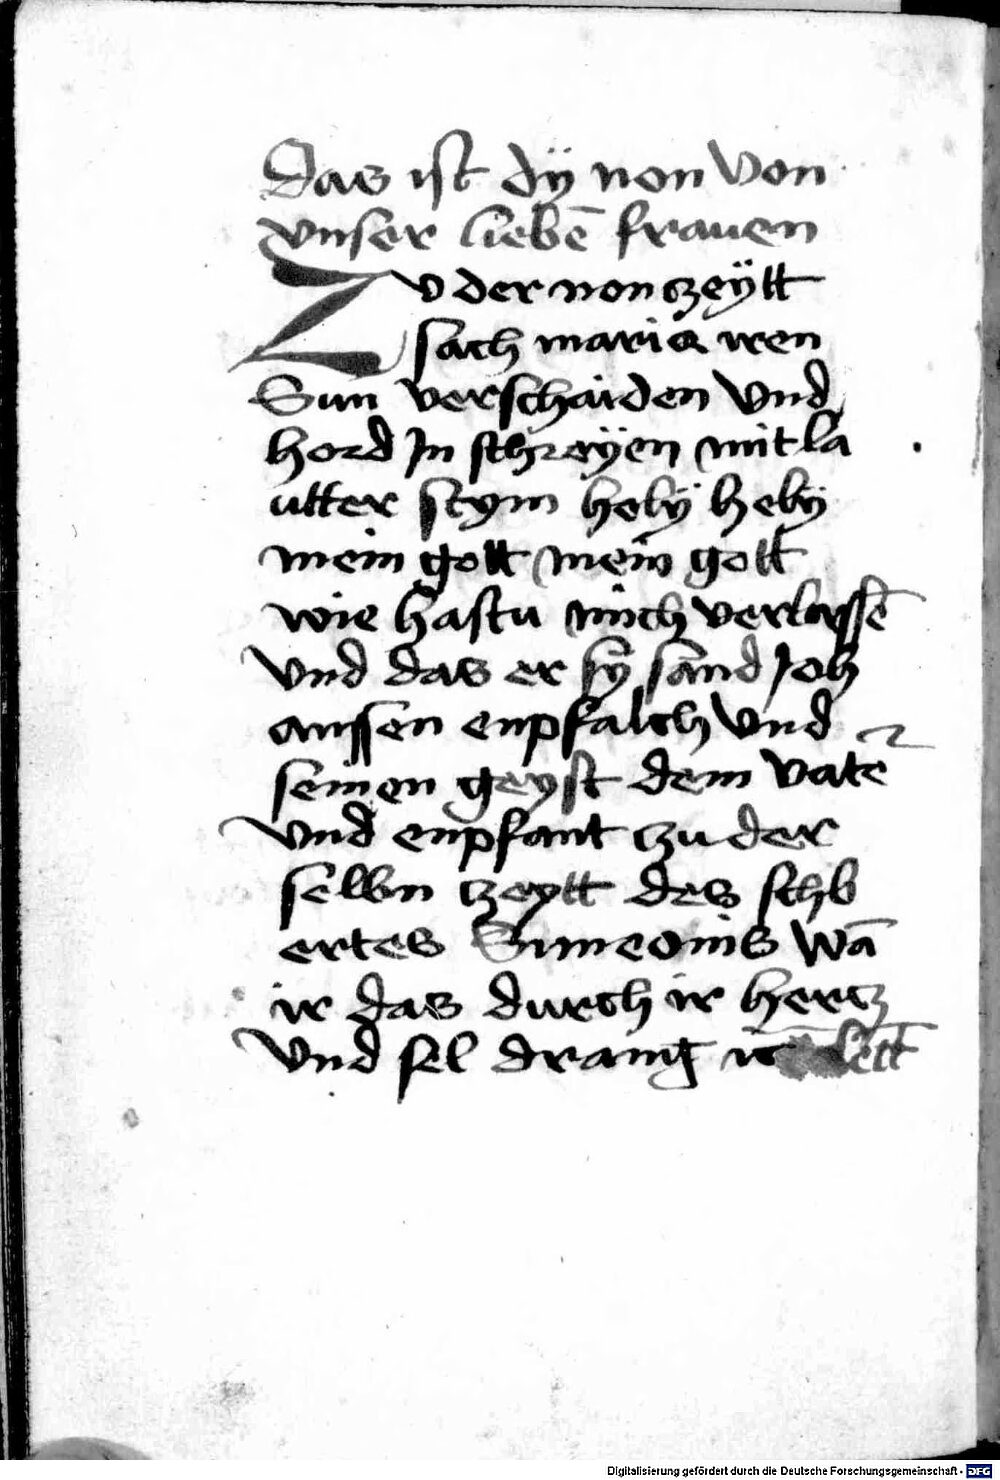 Das ist dÿ non von
vnser liebē frawen
Zv der non czeÿtt
sach maria iren
Sun verschaiden vnd
hord Jn schreÿen mit la
utter stym helÿ helÿ
mein gott mein gott
wie hastu mich verlassē
vnd das er sy sand Joh
anssen enpfalch vnd
seinen geyst dem vate
vnd enpfant czu der
selbn czeytt des schb
ertes Simeonis wā
ir das durch ir hercz
vnd sel drang
Digitalisierung gefördert durch die Deutsche Forschungsgemeinschaft - DFG